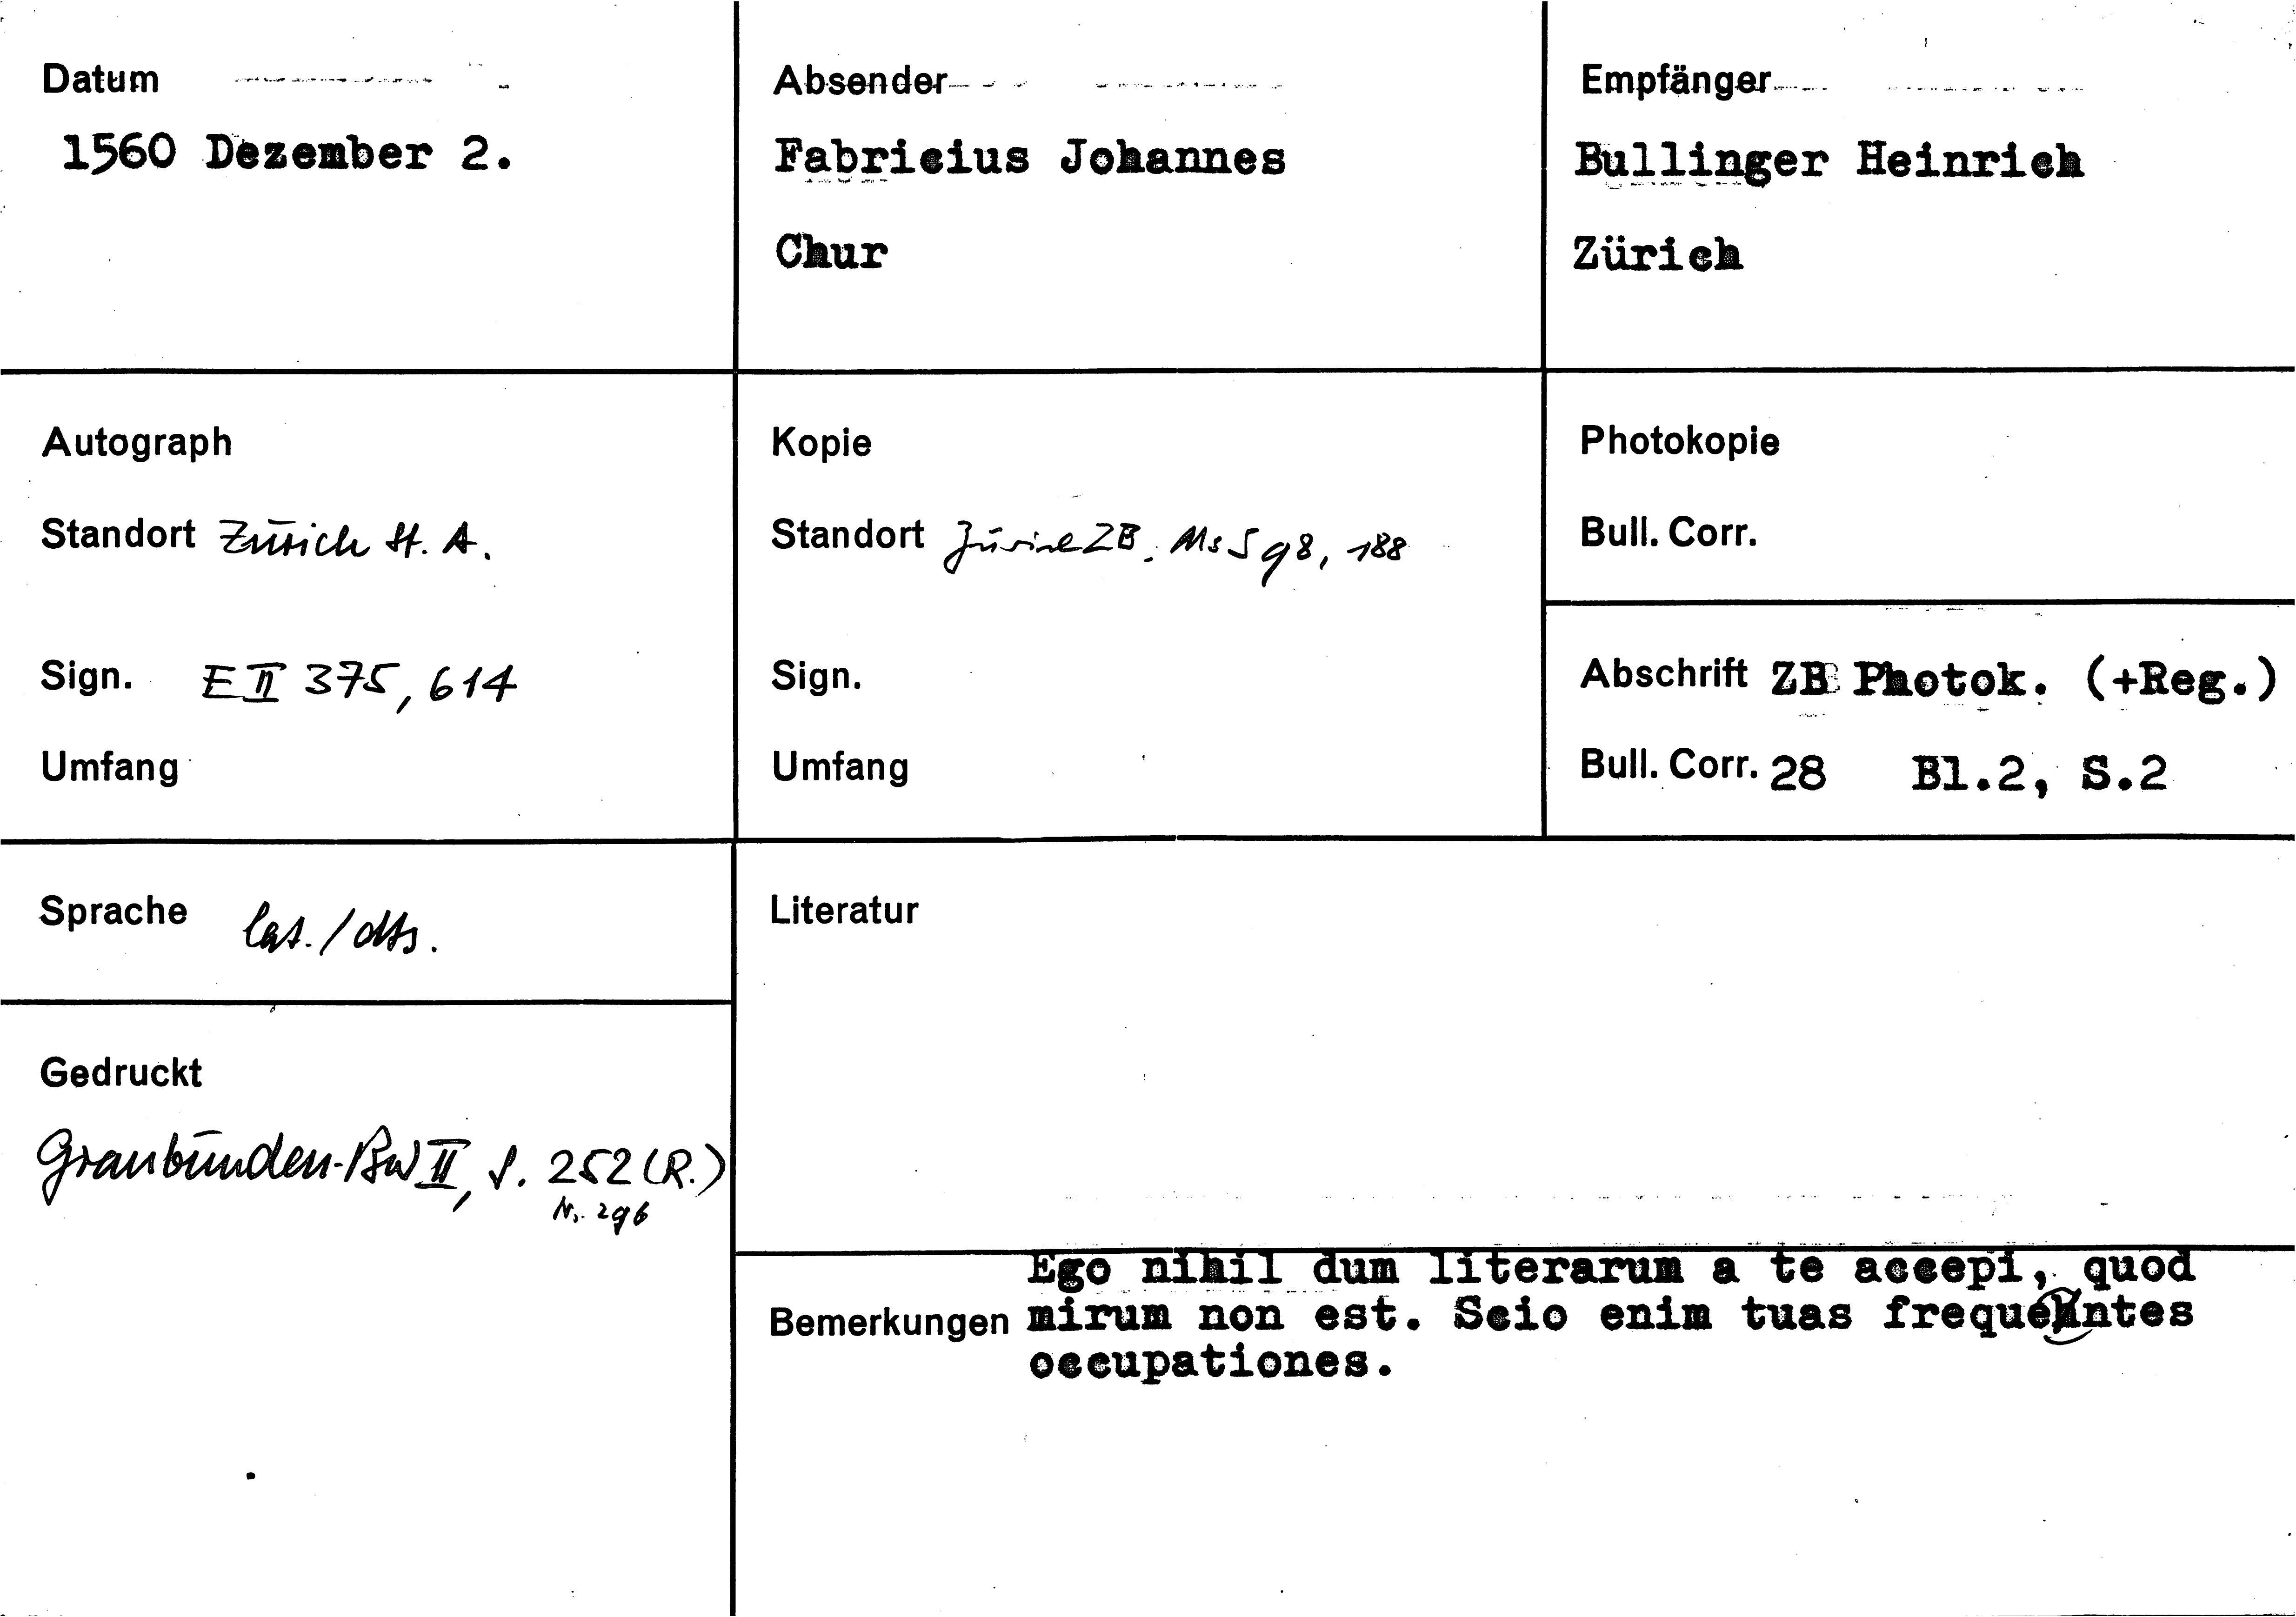 Datum
1560 Dezember 2.
Absender
Fabricius Johannes
Chur
Empfänger
Bullinger Heinrich
Zürich
Autograph
Standort Zürich St. A.
Sign. E II 375, 614
Umfang
Kopie
Standort Zürich ZB. Ms S 98, 188
Sign.
Umfang
Photokopie
Bull. Corr.
Abschrift ZB Photok. (+Reg.)
Bull. Corr. 28 Bl.2, S.2
Sprache lat./dts.
Gedruckt
Graubünden-BW II, S. 252 (R.)
Nr. 296
Literatur
Bemerkungen
Ego nihil dum literarum a te accepi, quod
mirum non est. Scio enim tuas frequentes
occupationes.